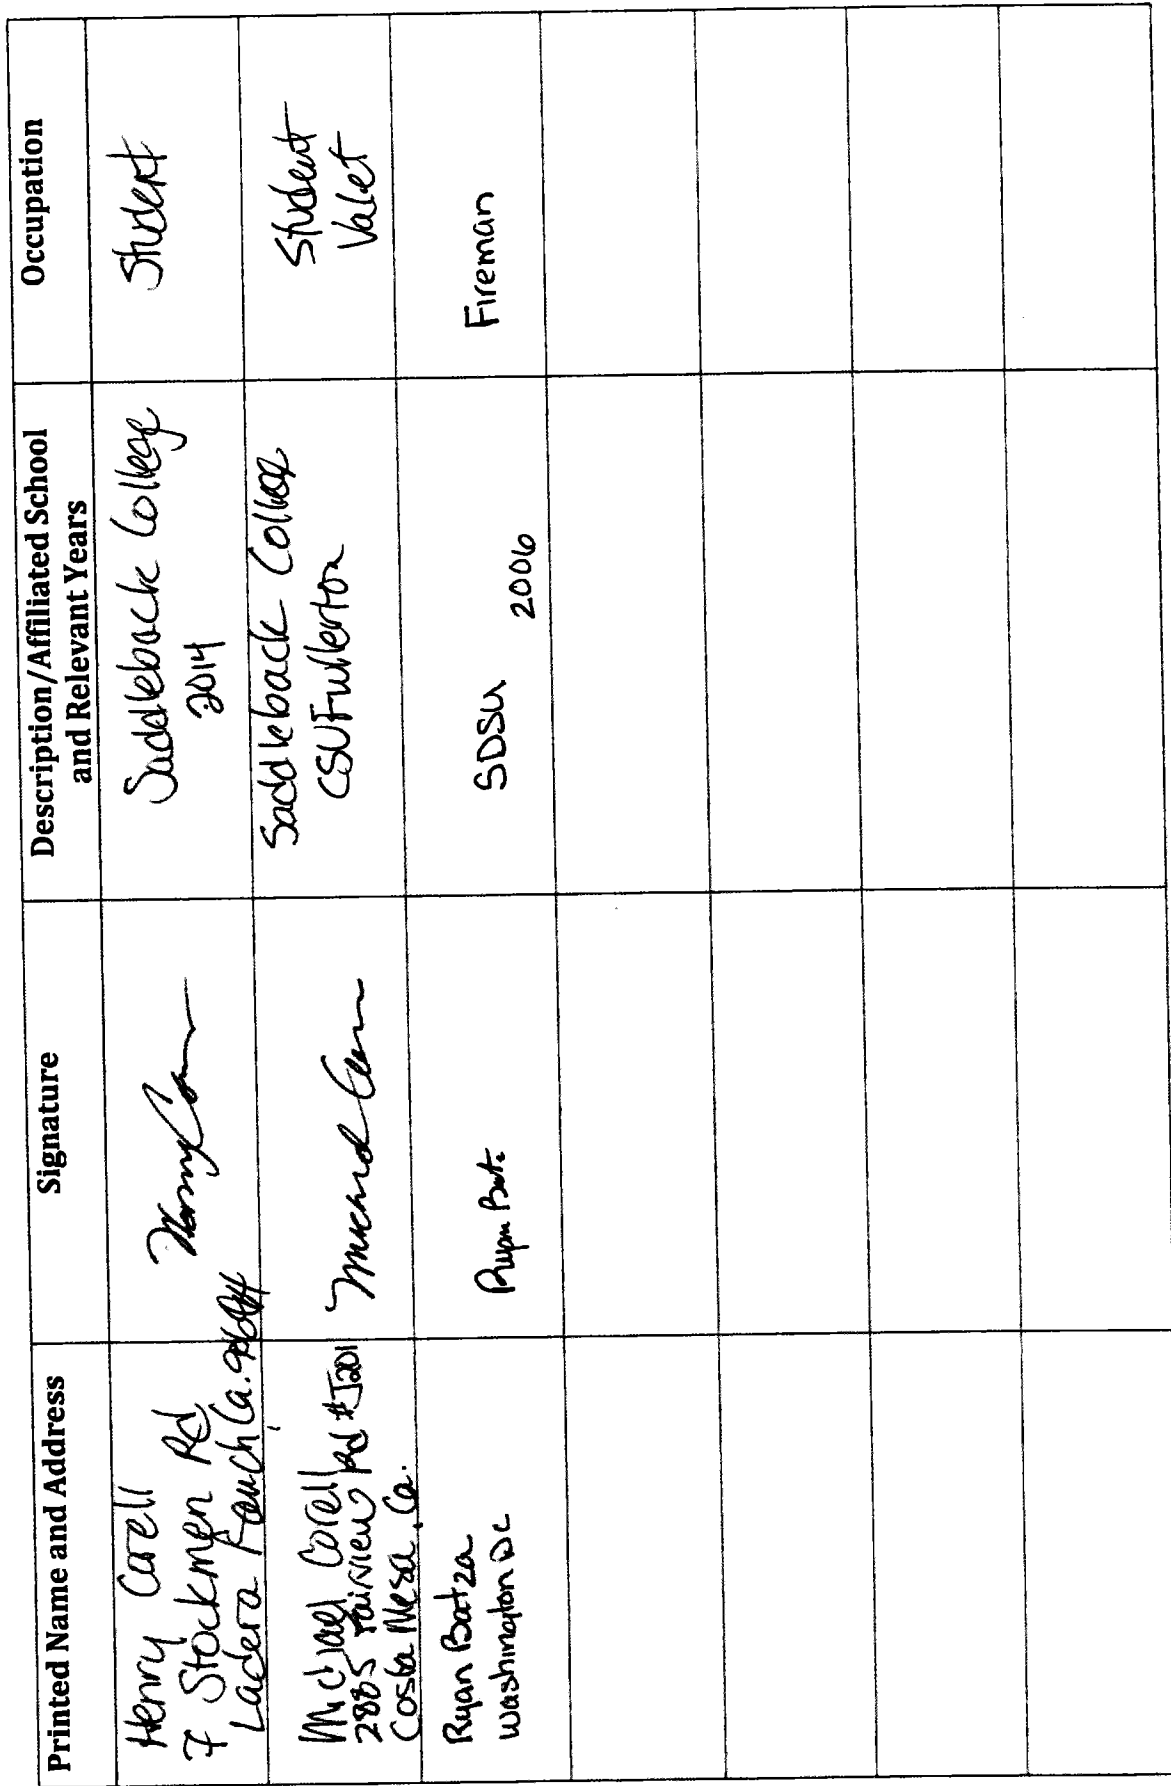 Printed Name and Address
Signature
Description/Affiliated School
and Relevant Years
Occupation
Henry Corell
7 Stockmen Rd
Ladera Ranch Ca.
Saddleback College
2014
Student
Michael Corell
2885 Fairview Rd #J201
Costa Mesa, Ca.
Saddleback College
CSUFullerton
Student
Valet
Ryan Batza
Washington DC
SDSU 2006
Fireman